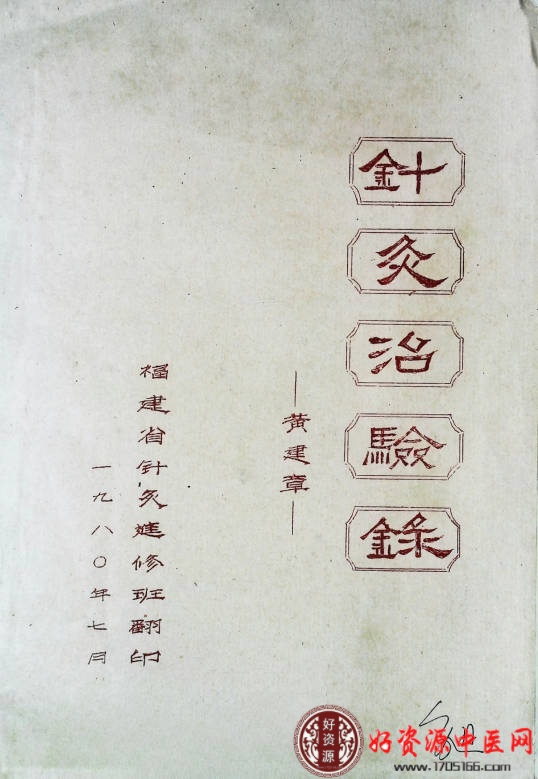 針灸治驗錄
—黃建章—
福建省針灸進修班翻印
一九八〇年七月
好资源
好资源中医网
www.1705166.com